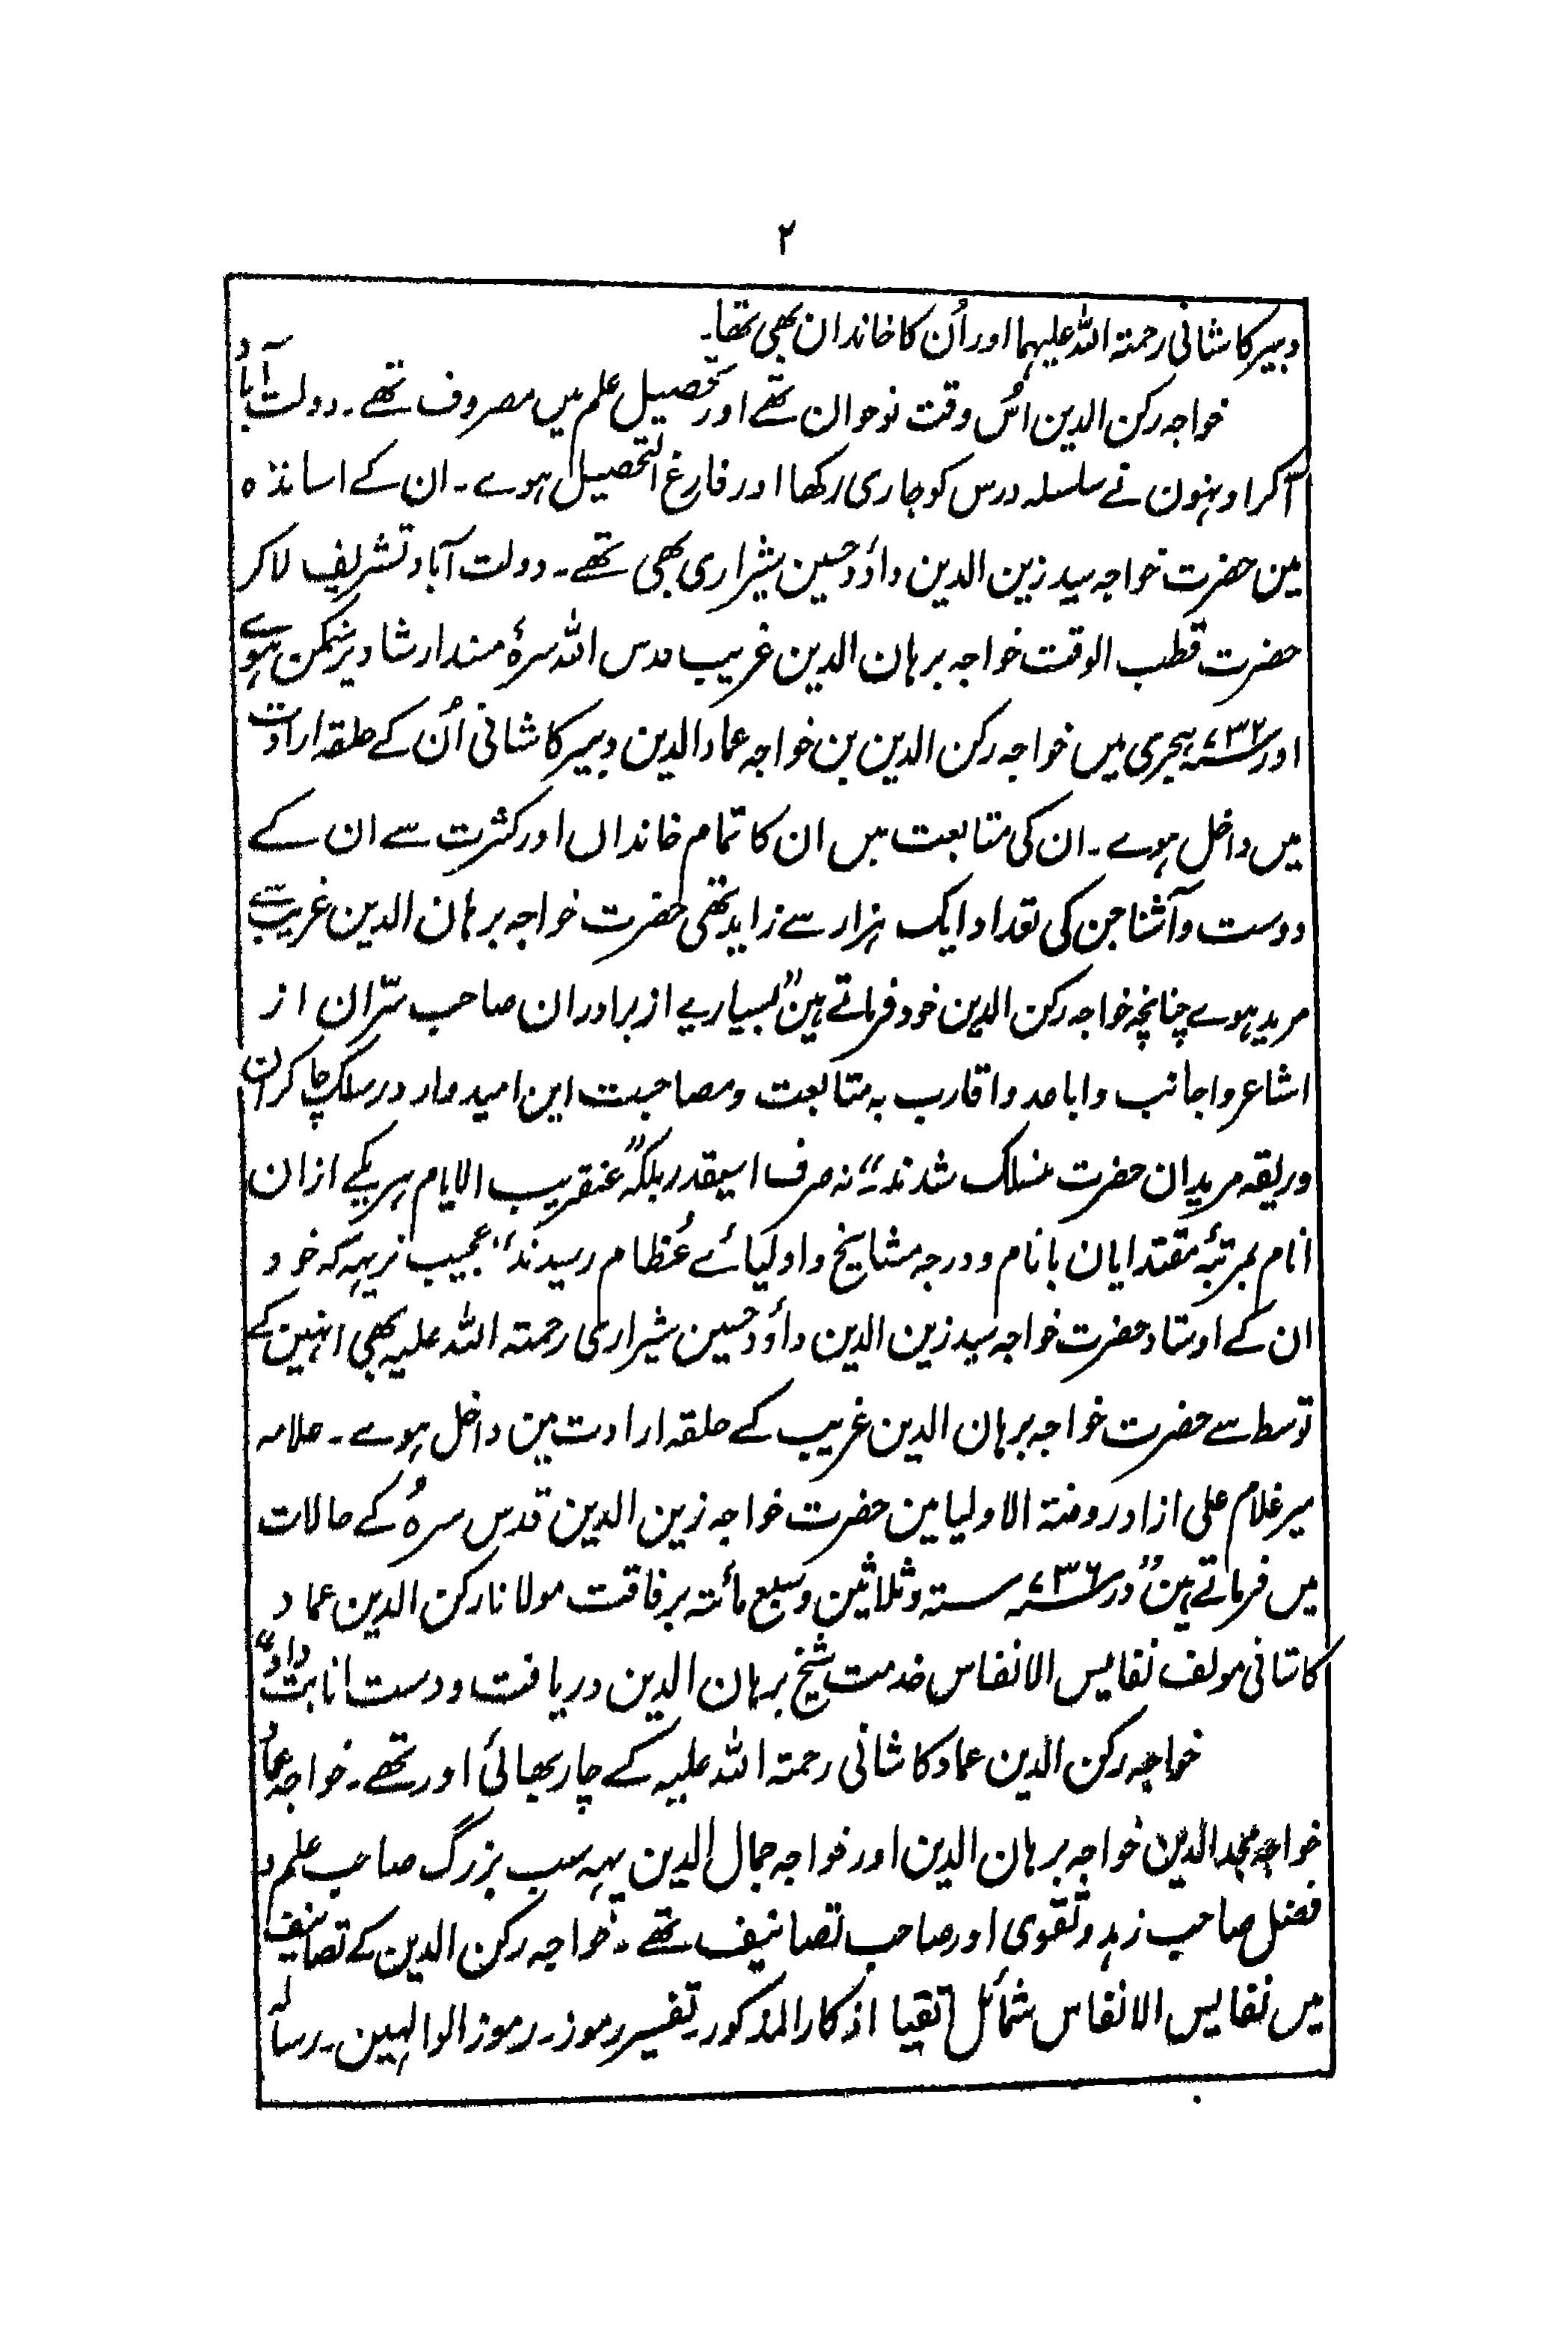 ۲
دبیر کاشانی رحمتہ اللہ علیہما اور اُن کا خاندان بھی تھا۔
خواجہ رکن الدین اسُ وقت نوجوان تھے اور تحصیل علم میں مصروف تھے۔ دولت آباد
آکر اوہنون نے سلسلہ درس کو جاری رکھا اور فارغ التحصیل ہوے۔ ان کے اساتذہ
مین حضرت خواجہ سید زین الدین داؤد حسین شیرازی بھی تھے۔ دولت آباد تشریف لاکر
حضرت قطب الوقت خواجہ برہان الدین غریب قدس اللہ سرہٗ مسند ارشاد پر متمکن ہوے
اور ۷۳۲ ہجری میں خواجہ رکن الدین بن خواجہ عماد الدین دبیر کاشانی اُن کے حلقہ ارادت
میں داخل ہوے۔ ان کی متابعت میں ان کا تمام خاندان اور کثرت سے ان کے
دوست و آشنا جن کی تعداد ایک ہزار سے زاید تھی حضرت خواجہ برہان الدین غریب سے
مرید ہوے چنانچہ خواجہ رکن الدین خود فرماتے ہین ”بسیارے از برادران صاحب سرّان از
اشاعر و اجانب و اباعد و اقارب بہ متابعت و مصاحبت این امیدوار در سلک چاکران
و ربقہ مریدان حضرت منسلک شدند“ نہ صرف اسیقدر بلکہ ”عنقریب الایام ہر یکے ازان
انام بمرتبۂ مقتدایان بانام و درجہ مشایخ و اولیائے عُظام رسیدند“ عجیب تر یہہ کہ خود
ان کے اوستاد حضرت خواجہ سید زین الدین داؤد حسین شیرازی رحمتہ اللہ علیہ بھی انہین کے
توسط سے حضرت خواجہ برہان الدین غریب کے حلقہ ارادت مین داخل ہوے۔ علامہ
میر غلام علی ازاد روضتہ الاولیا مین حضرت خواجہ زین الدین قدس سرہُ کے حالات
میں فرماتے ہین ”در ۷۳۶ ستہ و ثلاثین و سبع مائتہ برفاقت مولانا رکن الدین عماد
کاشانی مولف نفایس الانفاس خدمت شیخ برہان الدین دریافت و دست انابت داد“
خواجہ رکن الدین عماد کاشانی رحمتہ اللہ علیہ کے چار بھائی اور تھے۔ خواجہ عماد
خواجہ مجد الدین خواجہ برہان الدین اور خواجہ جمال الدین یہہ سب بزرگ صاحب علم و
فضل صاحب زہد و تقوی اور صاحب تصانیف تھے۔ خواجہ رکن الدین کے تصانیف
میں نفایس الانفاس شمائل اتقیا اذکار المذکور۔ تفسیر رموز۔ رموز الوالہین۔ رسالہ